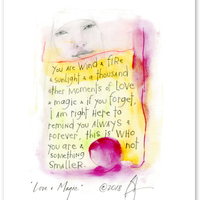 You are wind & fire
& sunlight & a thousand
other moments of love
& magic & if you forget,
I am right here to
remind you always &
forever, this is who
you are & not
something
smaller.
"Love & Magic" ©2018